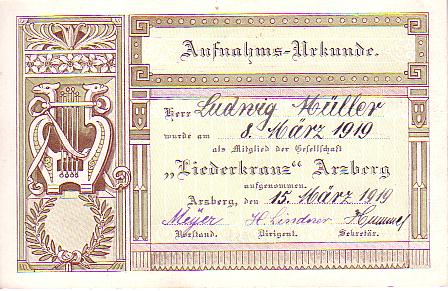 Aufnahms-Urkunde.
Herr Ludwig Müller
wurde am 8. März 1919
als Mitglied der Gesellschaft
„Liederkranz“ Arzberg
aufgenommen.
Arzberg, den 15. März 1919
Meyer H. Lindner Hummel
Vorstand. Dirigent. Sekretär.